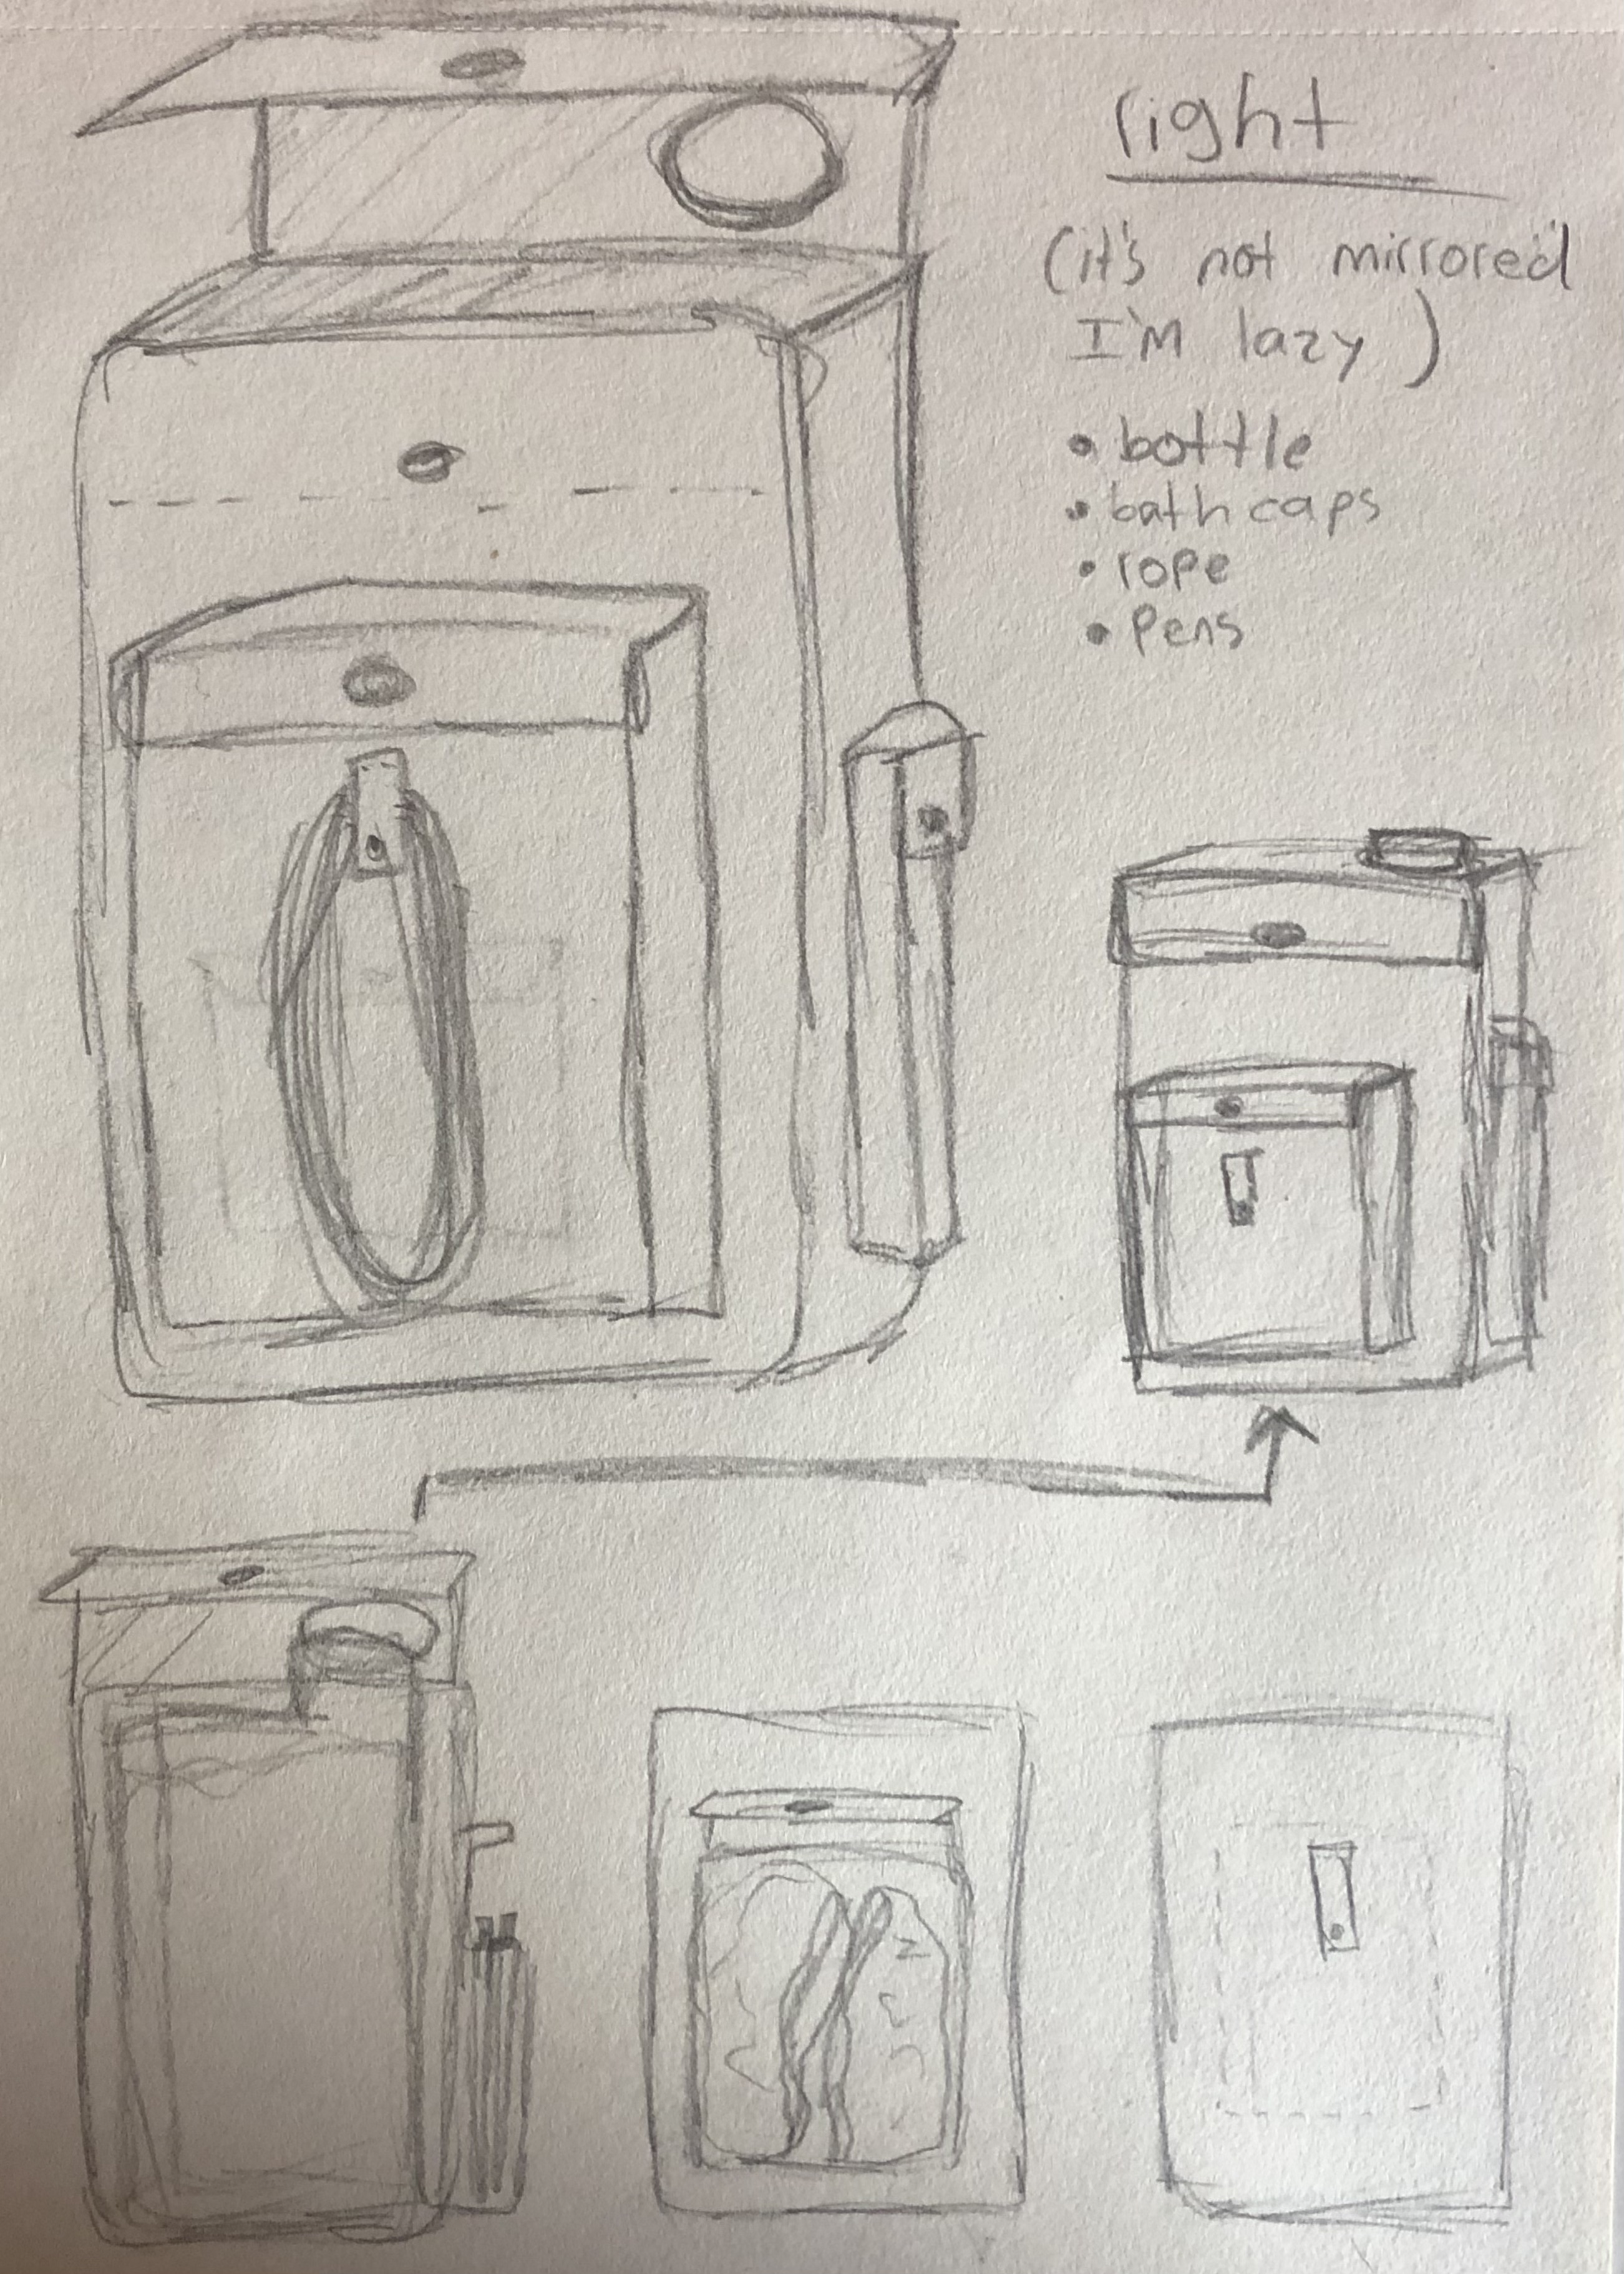 right
(it's not mirrored
I'm lazy )
• bottle
• bath caps
• rope
• Pens